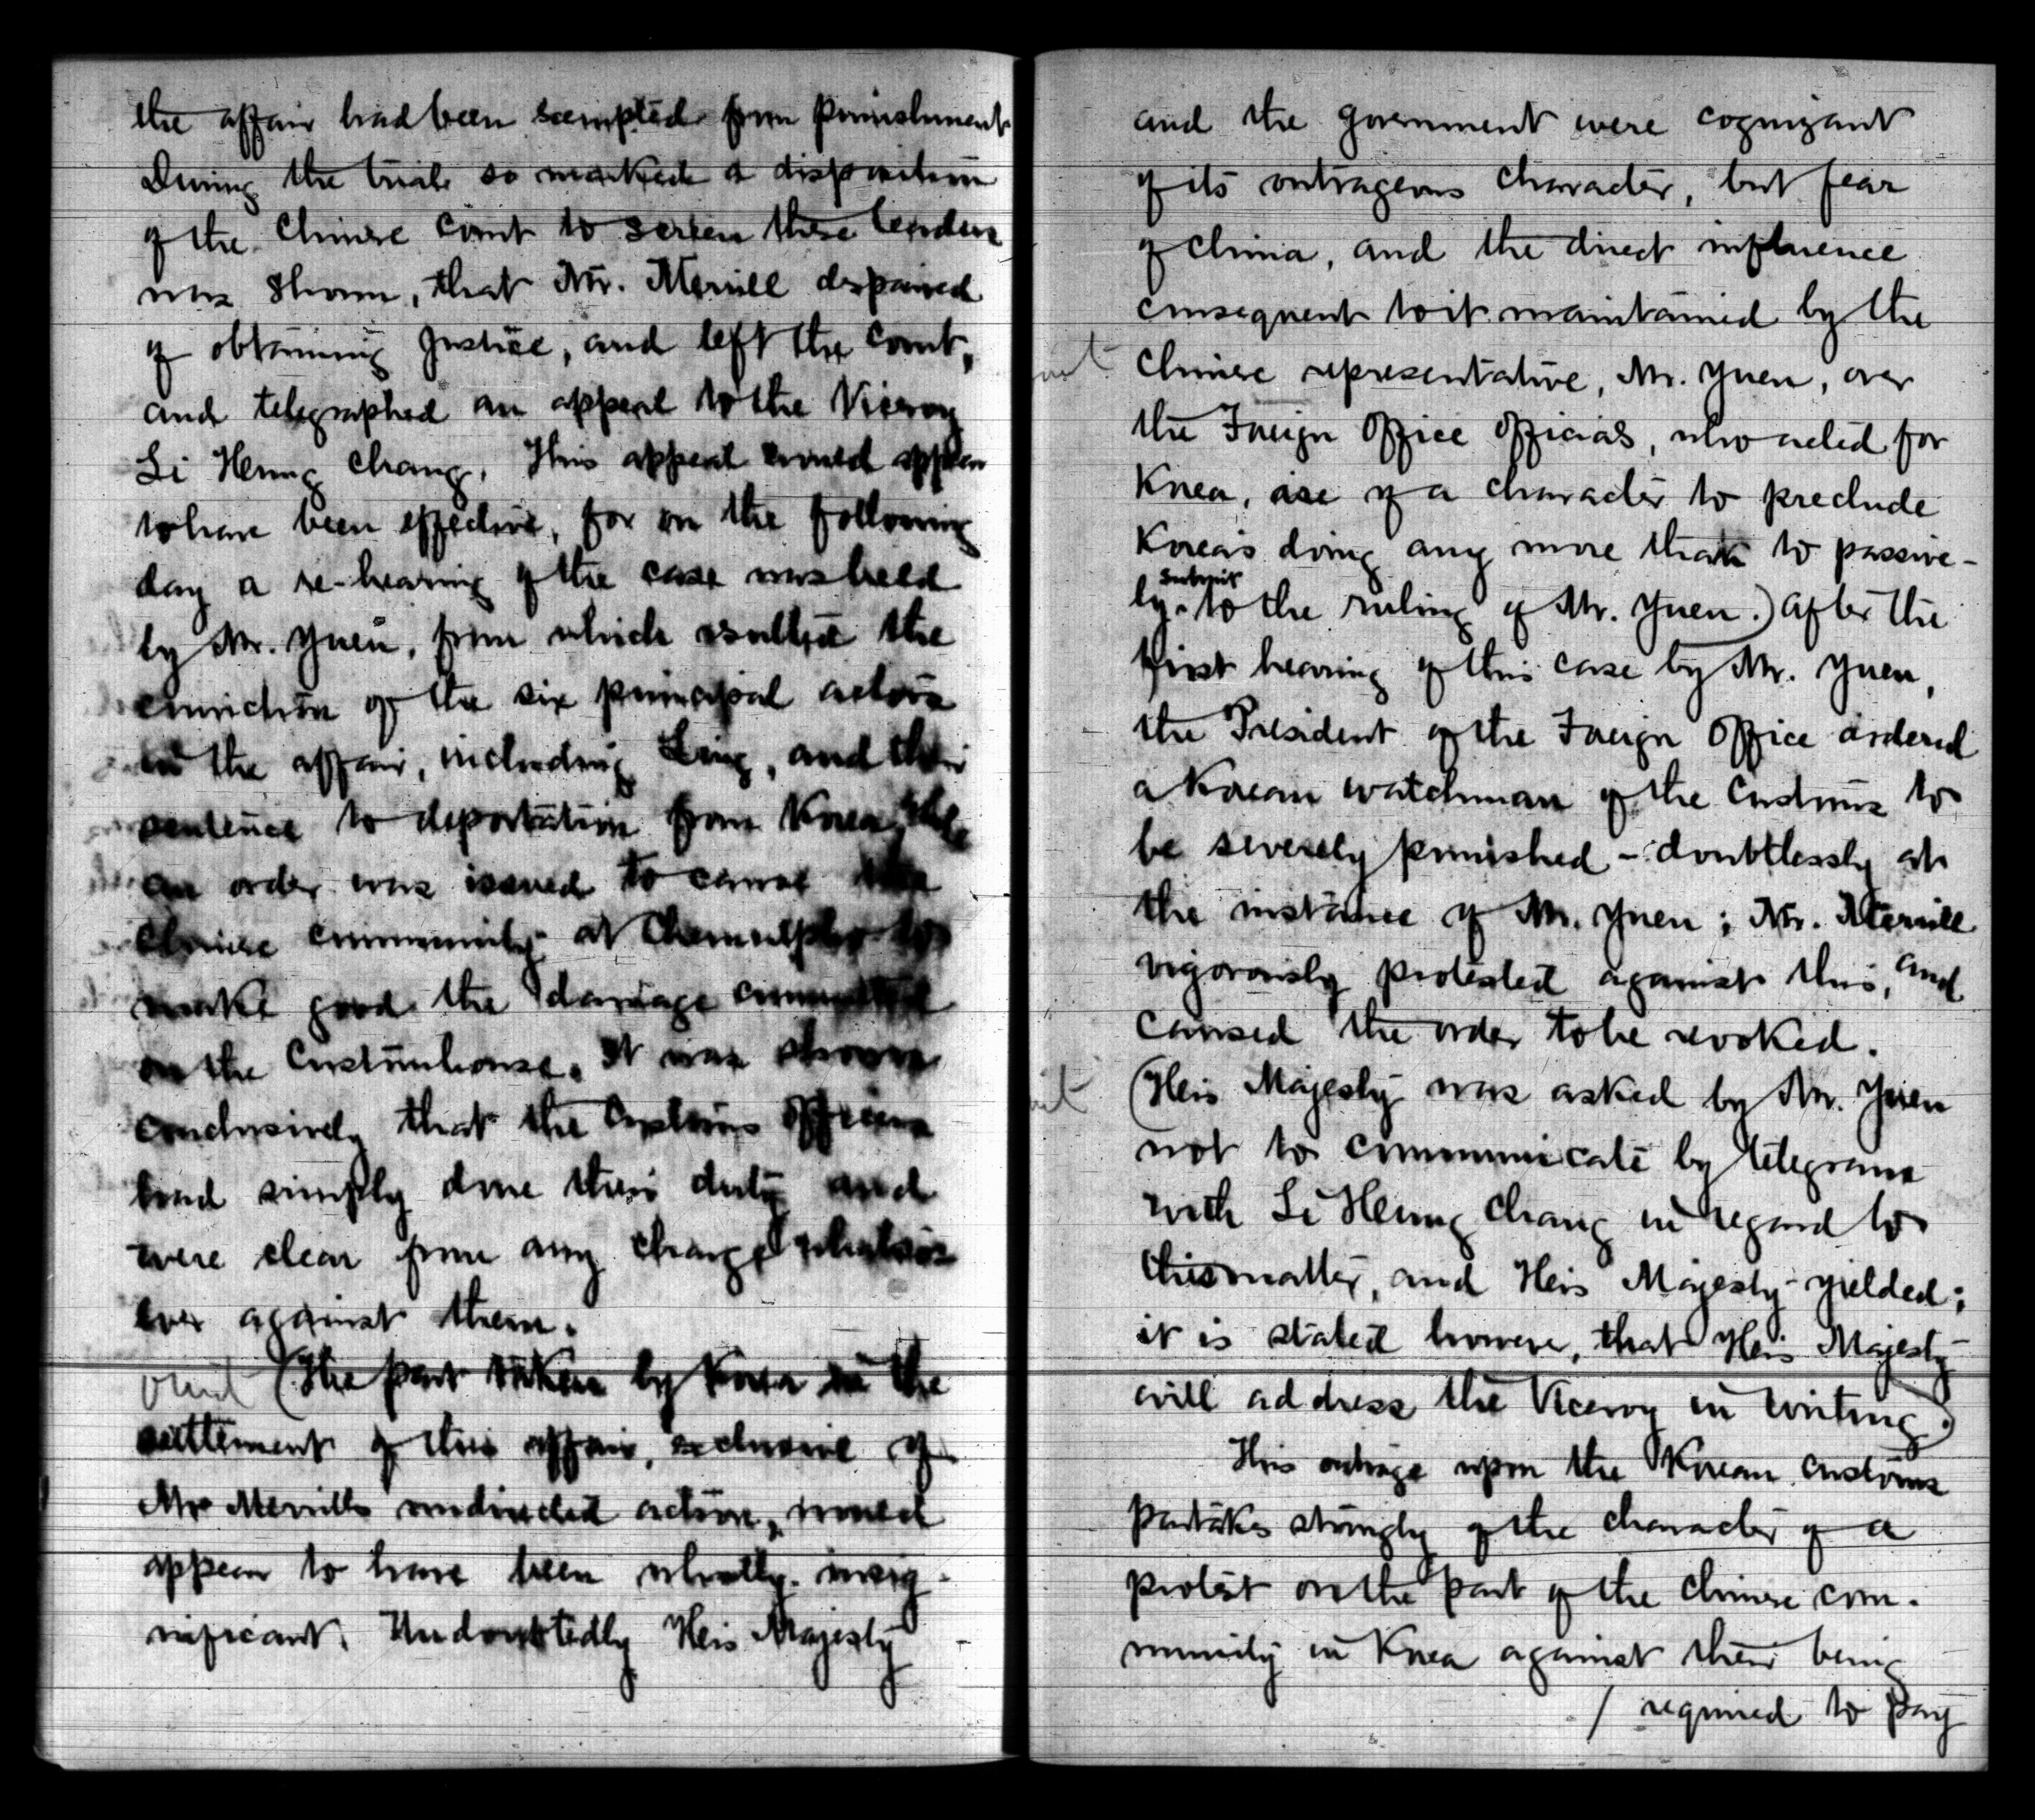 the affair had been exempted from punishment
During the trial so marked a disposition
of the Chinese Court to screen these leaders
was shown, that Mr. Merrill despaired
of obtaining justice, and left the Court,
and telegraphed an appeal to the Viceroy
Li Hung Chang. This appeal would appear
to have been effective, for on the following
day a re-hearing of the case was held
by Mr. Yuen, from which resulted the
conviction of the six principal actors
in the affair, including Ling, and their
sentence to deportation from Korea
an order was issued to cause the
Chinese community at Chemulpho to
make good the damage committed
on the Customhouse. It was shown
conclusively that the Customs officers
had simply done their duty and
were clear from any charge whatso
ever against them.
omit (The part taken by Korea in the
settlement of this affair, exclusive of
Mr Merrills undirected action, would
appear to have been wholly insig-
nificant. Undoubtedly His Majesty
and the government were cognizant
of its outrageous character, but fear
of China, and the direct influence
consequent to it maintained by the
Chinese representative, Mr. Yuen, over
the Foreign Office Officials, who acted for
Korea, are of a character to preclude
Korea's doing any more than to passive-
ly submit to the ruling of Mr. Yuen.) After the
first hearing of this case by Mr. Yuen,
the President of the Foreign Office ordered
a Korean watchman of the Customs to
be severely punished - doubtlessly at
the instance of Mr. Yuen; Mr. Merrill
vigorously protested against this, and
caused the order to be revoked.
(His Majesty was asked by Mr. Yuen
not to communicate by telegrams
with Li Hung Chang in regard to
this matter, and His Majesty yielded;
it is stated however, that His Majesty
will address the Viceroy in writing.)
This outrage upon the Korean Customs
partakes strongly of the character of a
protest on the part of the Chinese com-
munity in Korea against their being
/ required to pay